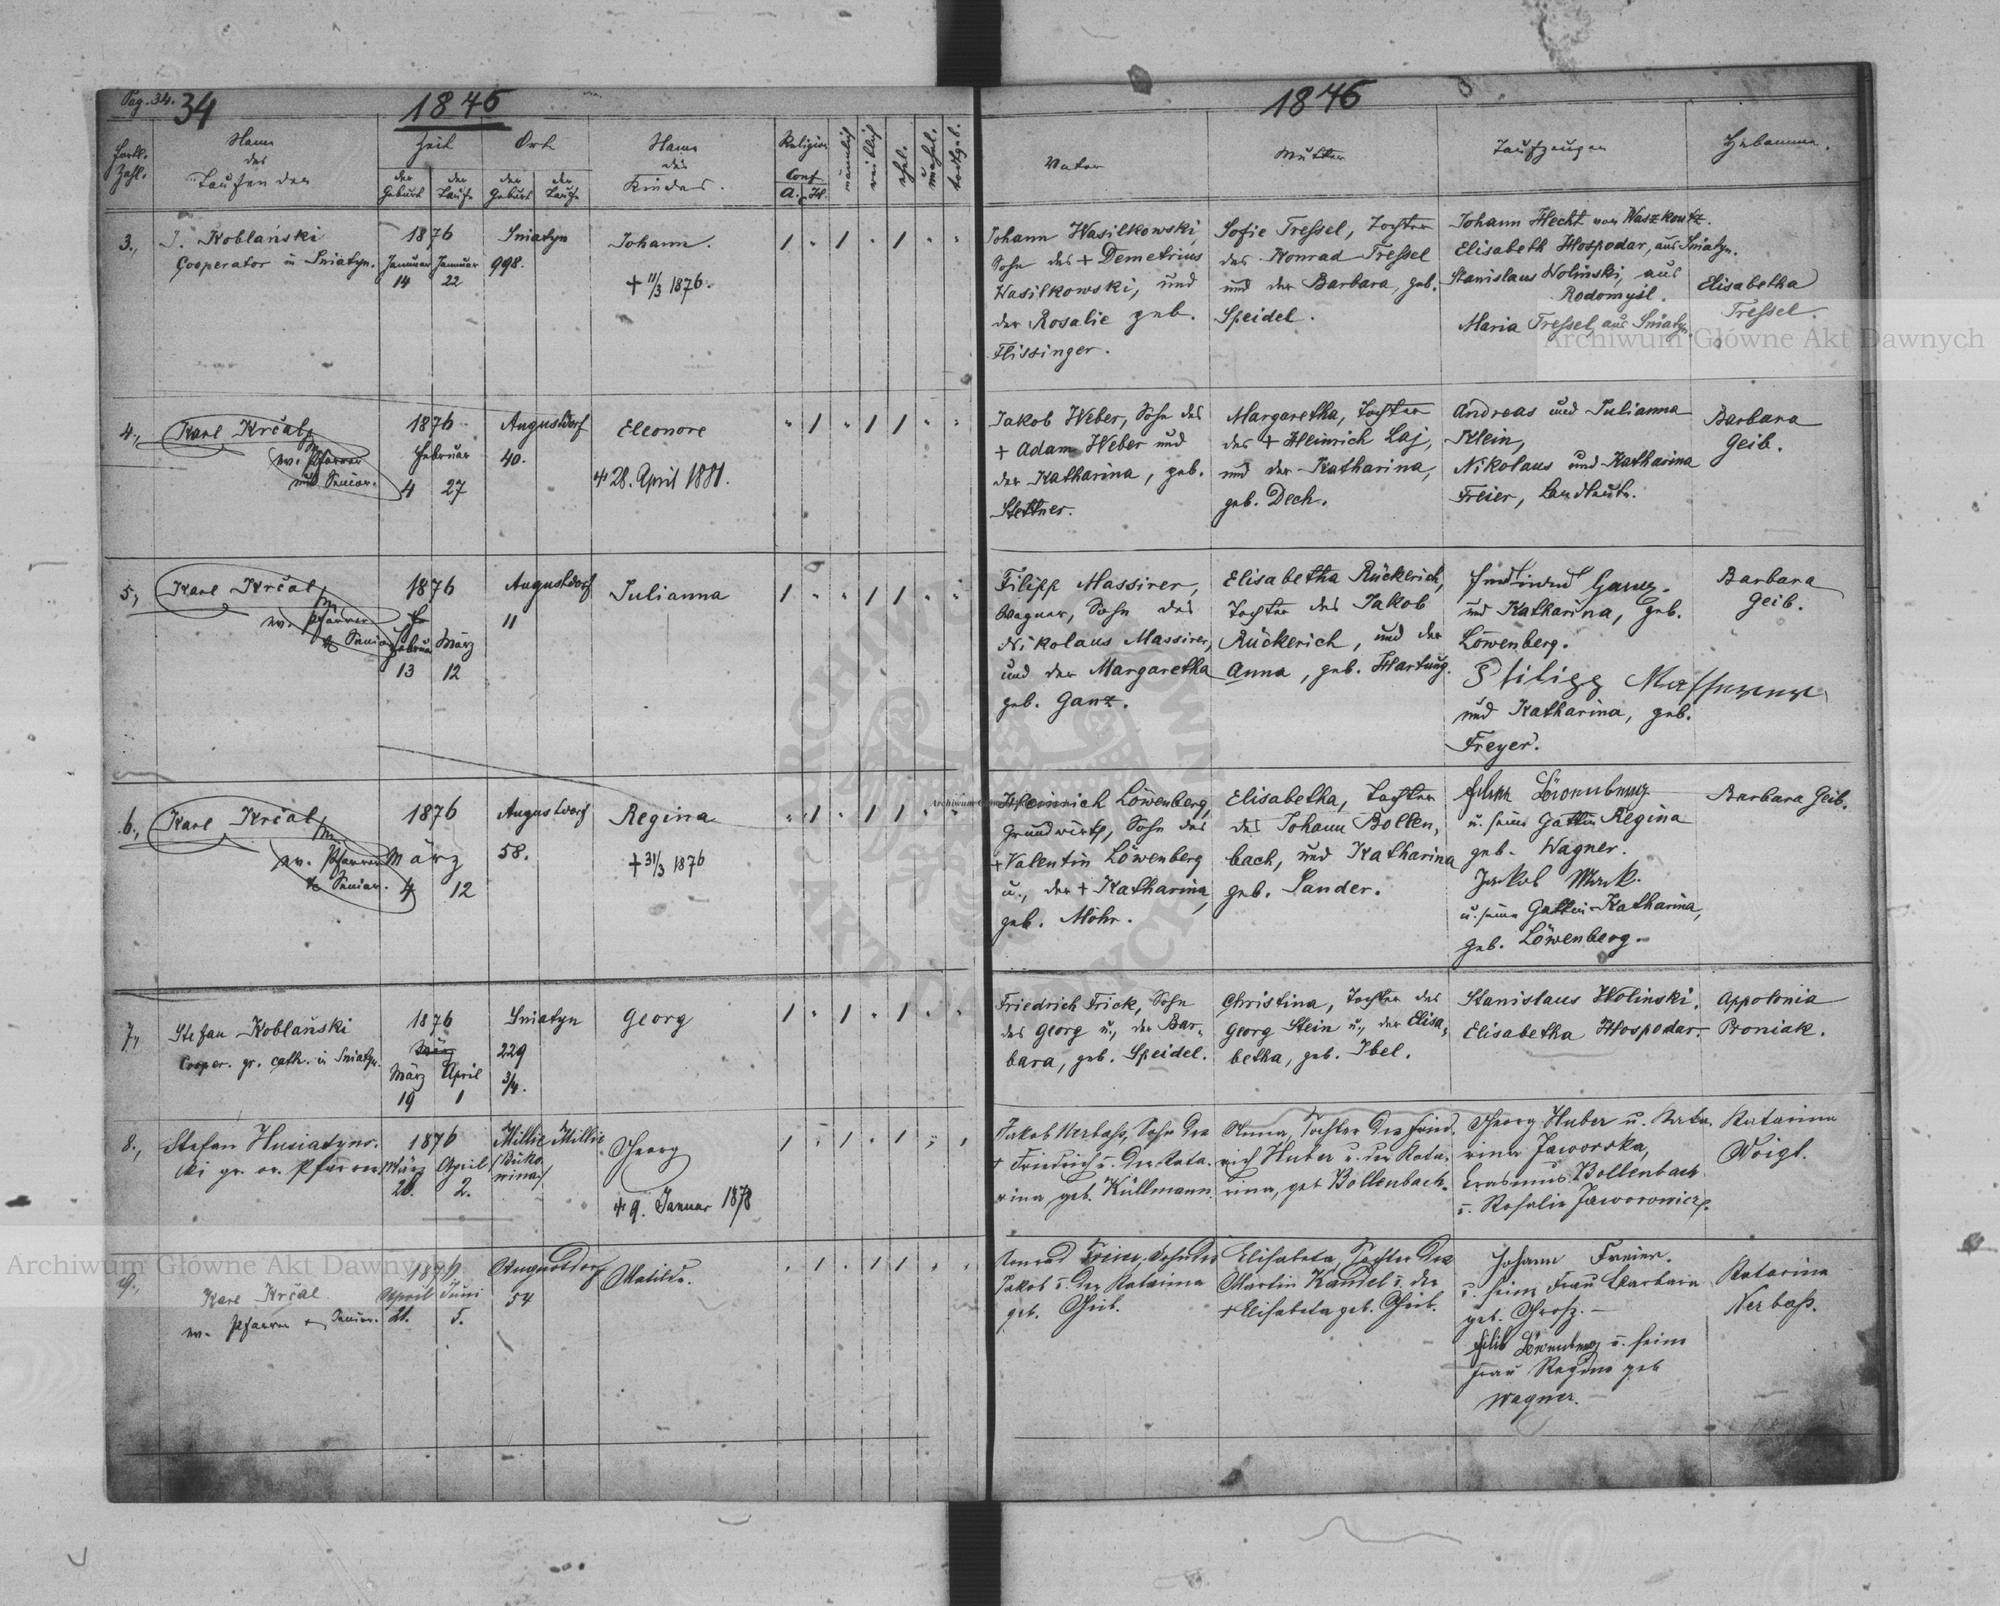 Pag. 34.
34
1876
1876
Fortl. Zahl.
Name des Taufenden
Zeit
der Geburt
der Taufe
Ort
der Geburt
der Taufe
Name des Kindes.
Religion
Conf
A. C. H.
männlich
weiblich
ehel.
unehel.
todtgeb.
Vater
Mutter
Taufzeugen
Hebamme.
3.,
J. Koblański
Cooperator in Sniatyn.
1876
Januar Januar
14 22
Sniatyn
998.
Johann.
+ 11/3 1876.
Johann Wasilkowski,
Sohn des + Demetrius
Wasilkowski, und
der Rosalie geb.
Flissinger.
Sofie Tressel, Tochter
des Konrad Tressel
und der Barbara, geb.
Speidel.
Johann Hecht von Waszkoutz.
Elisabeth Hospodar, aus Sniatyn.
Stanislaus Wolinski, aus
Rodomysl.
Maria Tressel, aus Sniatyn.
Elisabetha
Tressel.
4.,
Karl Krčal
ev. Pfarrer
und Senior.
1876
Februar
4 27
Augustdorf
40.
Eleonore
+ 28. April 1881.
Jakob Weber, Sohn des
+ Adam Weber und
der Katharina, geb.
Stettner.
Margaretha, Tochter
des + Heinrich Laj,
und der Katharina,
geb. Dech.
Andreas und Julianna
Klein,
Nikolaus und Katharina
Freier, Landleute.
Barbara
Geib.
5.,
Karl Krčal
ev. Pfarrer
& Senior
1876
Februar März
13 12
Augustdorf
11
Julianna
Filipp Massirer,
Wagner, Sohn des
Nikolaus Massirer,
und der Margaretha
geb. Ganz.
Elisabetha Rückerich,
Tochter des Jakob
Rückerich, und der
Anna, geb. Hartung.
Ferdinand Ganz.
und Katharina, geb.
Löwenberg.
Philipp
und Katharina, geb.
Freyer.
Barbara
Geib.
6.,
Karl Krčal
ev. Pfarrer
& Senior.
1876
März
4 12
Augustdorf
58.
Regina
+ 31/3 1876
Heinrich Löwenberg,
Grundwirth, Sohn des
+ Valentin Löwenberg
u., der + Katharina,
geb. Mohr.
Elisabetha, Tochter
des Johann Bollen,
bach, und Katharina
geb. Sander.
Löwenberg
u. seine Gattin Regina
geb. Wagner.
Jakob Mark.
u. seine Gattin Katharina,
geb. Löwenberg.
Barbara Geib.
7.,
Stefan Koblański
Cooper. gr. cath. in Sniatyn.
1876
März
März April
19 1
Sniatyn
229
3/4.
Georg
Friedrich Frick, Sohn
des Georg u., der Bar-
bara, geb. Speidel.
Christina, Tochter des
Georg Stein u., der Elisa,
betha, geb. Ibel.
Stanislaus Wolinski.
Elisabetha Hospodar.
Appolonia
Proniak.
8.,
Stefan Husiatyns-
ki gr. or. Pfarrer
1876
März April
28. 2.
Millie Millie
(Buko
wina)
Georg
+ 9. Januar 1878
Jakob Nerbaß, Sohn des
+ Friedrich u. der Kata-
rina geb. Küllmann.
Anna, Tochter des Fried.
rich Huber u. der Kata-
rina, geb Bollenbach.
Georg Huber u. Kata.
rina Jaworska,
Erasmus Bollenbach
u. Rosalie Jaworowicz.
Katarina
Voigt.
9.,
Karl Krčal
ev. Pfarrer & Senior.
1876
April Juni
21. 5.
Augustdorf
54
Matilde.
Konrad Freier, Sohn des
Jakob u. der Katarina
geb. Geib.
Elisabeta, Tochter des
Martin Kandel u. der
+ Elisabeta geb. Geib.
Johann Freier.
u. seine Frau Barbara
geb. Grosz.
Filib Löwenberg u. seine
Frau Regina geb
Wagner.
Katarina
Nerbaß.
Archiwum Główne Akt Dawnych
Archiwum Główne Akt Dawnych
ARCHIWUM
AKT